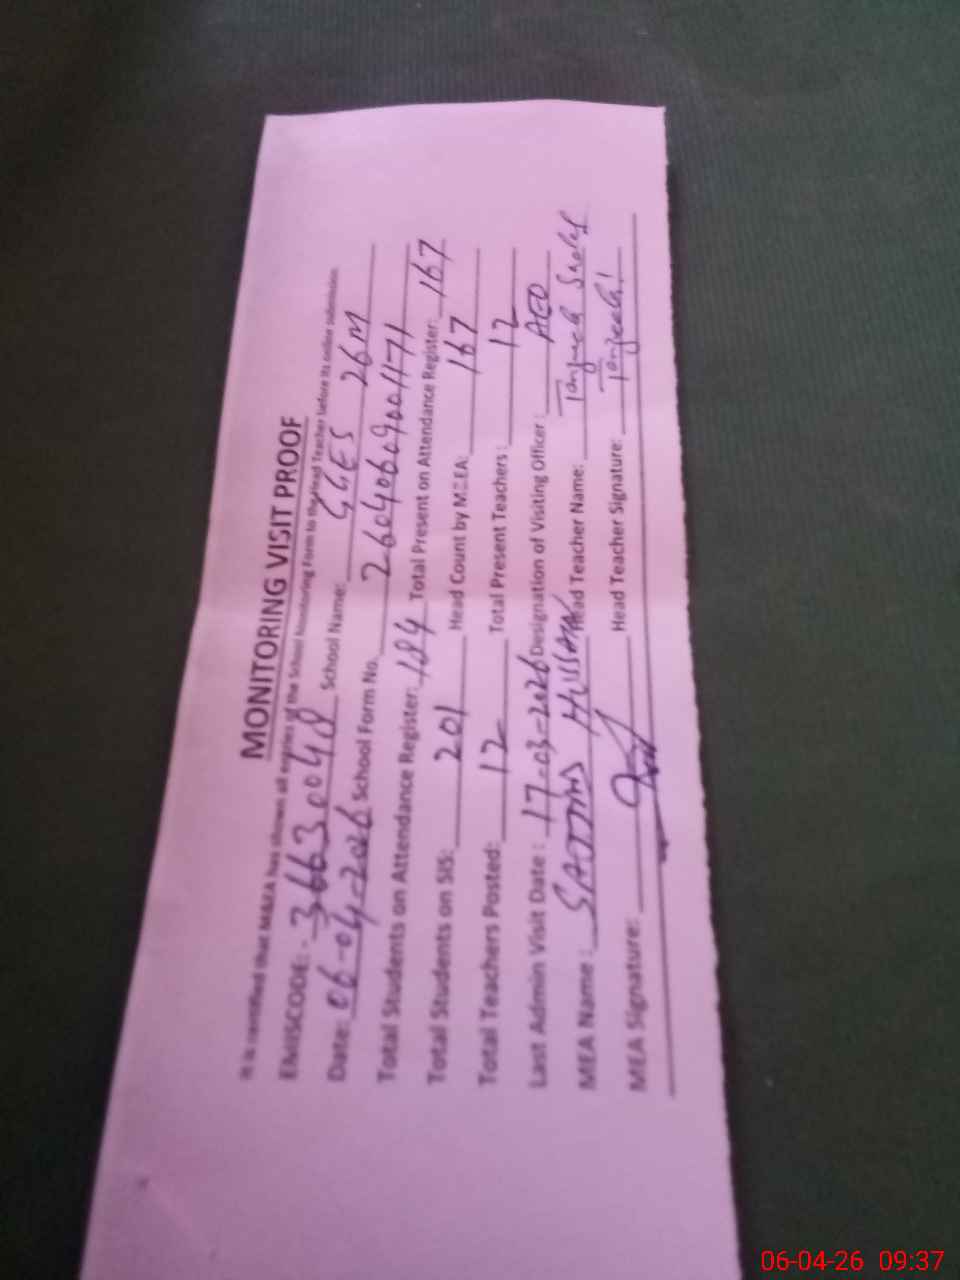 MONITORING VISIT PROOF
It is certified that MEA has shown all entries of the School Monitoring Form to the Head Teacher before its online submission
EMISCODE:- 36630048 School Name: GGES 26M
Date: 06-04-2026 School Form No. 26040609001171
Total Students on Attendance Register: 184 Total Present on Attendance Register: 167
Total Students on SIS: 201 Head Count by MEEA: 167
Total Teachers Posted: 12 Total Present Teachers: 12
Last Admin Visit Date: 17-03-2026 Designation of Visiting Officer: AEO
MEA Name: HUSSAIN Head Teacher Name: Tanzeela
MEA Signature: Head Teacher Signature: Tanzeela
06-04-26 09:37